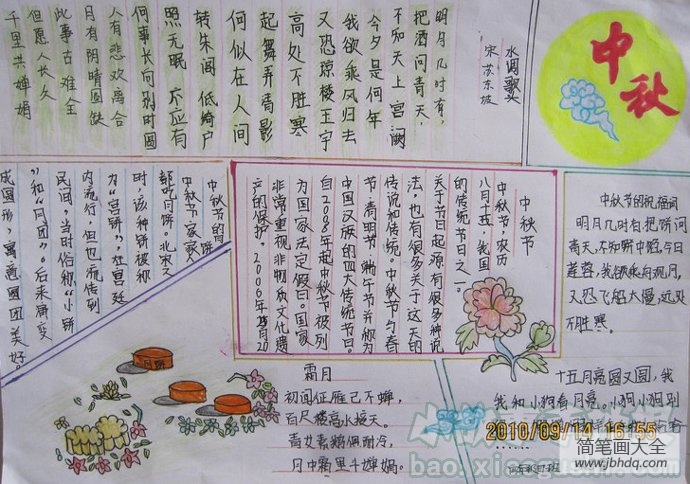 中秋
水调歌头
宋苏东坡
明月几时有,
把酒问青天,
不知天上宫阙
今夕是何年
我欲乘风归去
又恐琼楼玉宇
高处不胜寒
起舞弄清影
何似在人间
转朱阁 低绮户
照无眠 不应有
何事长向别时圆
人有悲欢离合
月有阴晴圆缺
此事古难全
但愿人长久
千里共婵娟
中秋节
中秋节,农历
八月十五,我国
的传统节日之一。
关于节日起源有很多种说
法,也有很多关于这天的
传说和传统。中秋节与春
节、清明节、端午节并称为
中国汉族的四大传统节日。
自2008年起中秋节被列
为国家法定假日。国家
非常重视非物质文化遗
产的保护,2006年5月20
中秋节的
中秋节家家
都吃月饼。北宋之
时,该种饼被称
为“宫饼”,在宫廷
内流行,但也流传到
民间,当时俗称“小饼
”和“月团”。后来演变
成圆形,寓意团团美好。
中秋节的祝福词
明月几时有,把饼问
青天,不知饼中馅,今日
是否,我欲乘舟观月,
又恐飞船太慢,远处
不胜寒。
霜月
初闻征雁已不蝉,
百尺楼高水接天。
青女素娥俱耐冷,
月中霜里斗婵娟。
十五月亮圆又圆,我
我和小狗看月亮,小狗小狗别
……
2010/09/14 16:55
简笔画大全
www.jbhdq.com